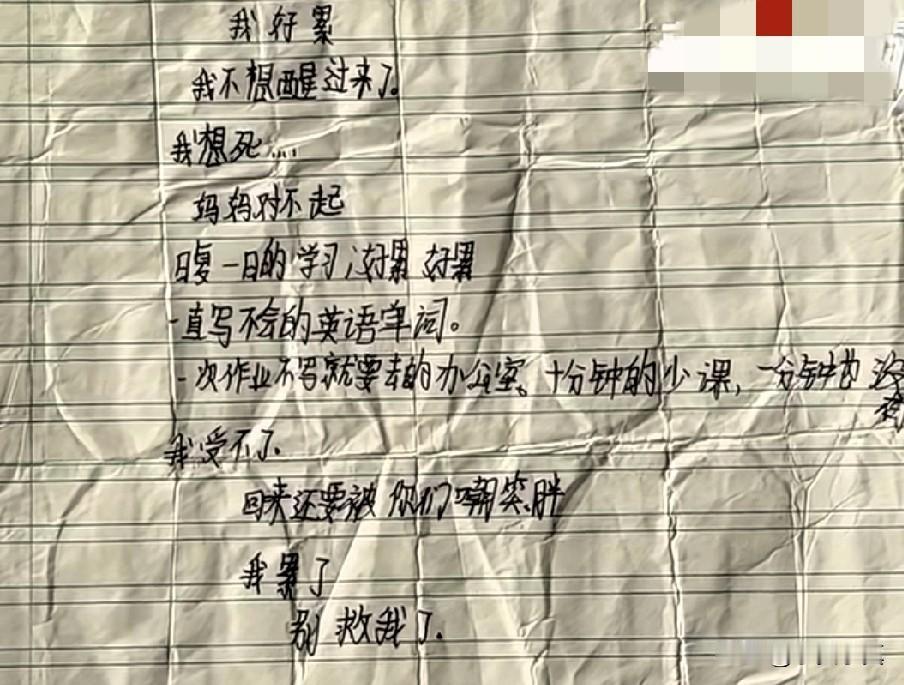 我好累
我不想醒过来了。
我想死....
妈妈对不起
日复一日的学习，好累 好累
一直写不会的英语单词。
一次作业不写就要去的办公室。十分钟的少课，一分钟也没有
我受不了.
回来还要被你们嘲笑胖
我累了
别救我了.